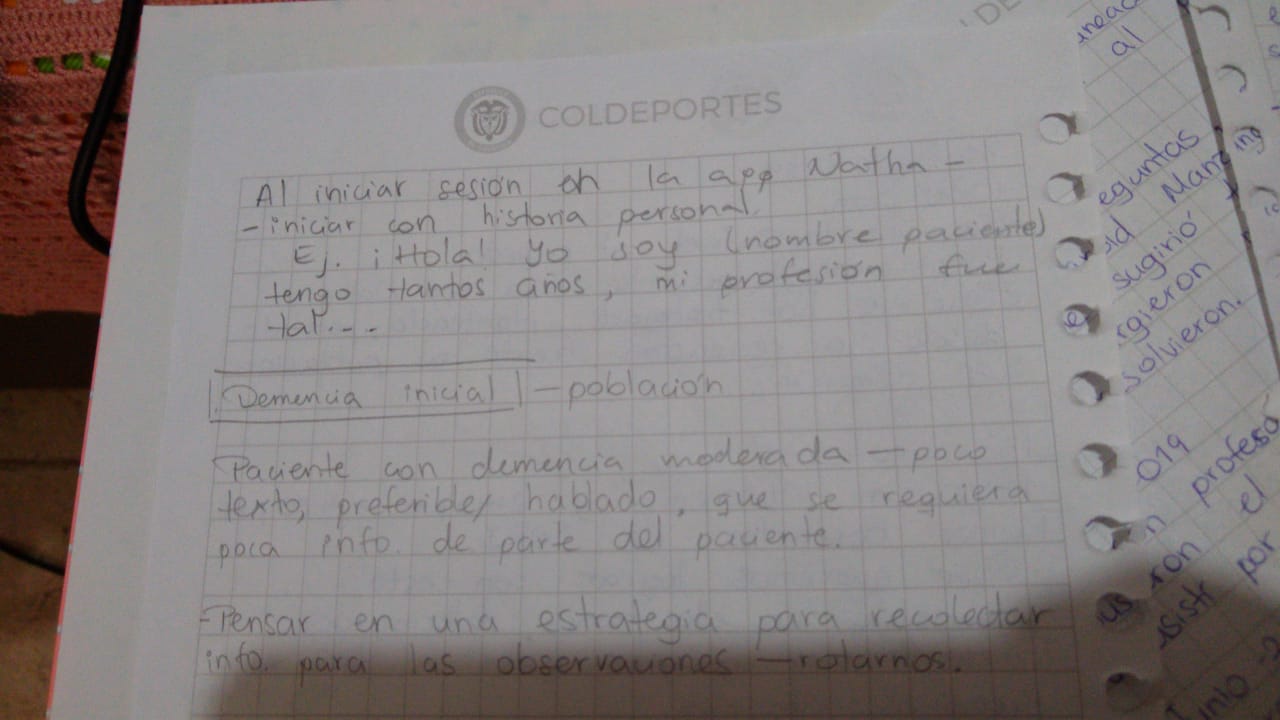 COLDEPORTES
Al iniciar sesión en la app Natha -
- iniciar con historia personal.
Ej. ¡Hola! Yo soy (nombre paciente)
tengo tantos años, mi profesión fue
tal...
Demencia inicial - población
Paciente con demencia moderada - poco
texto, preferible/ hablado, que se requiera
poca info. de parte del paciente.
- Pensar en una estrategia para recolectar
info. para las observaciones - rotarnos.
al
eguntas
sugirió
rgieron
solvieron.
019
n profeso
ron el
por